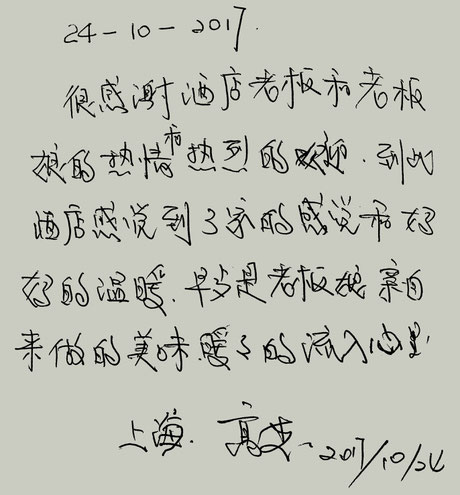 24-10-2017.
很感谢酒店老板和老板
娘的热情和热烈的欢迎.到此
酒店感觉到了家的感觉和好
好的温暖.早步是老板娘亲自
来做的美味.暖了的流入心里
上海. 高 2017/10/24